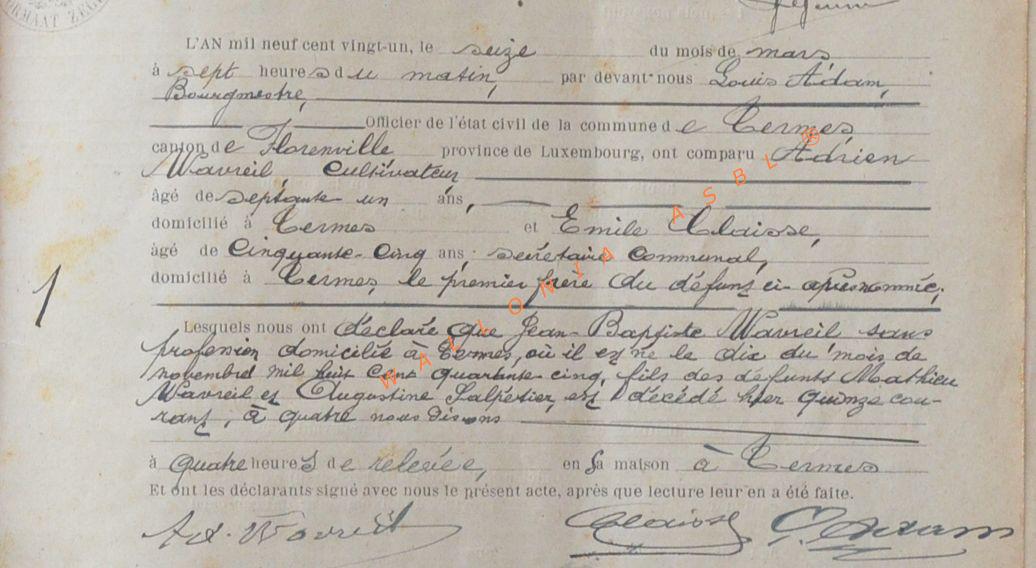 FORMAAT ZEGEL
L'AN mil neuf cent vingt-un, le seize du mois de mars
à sept heures du matin, par devant nous Louis Adam,
Bourgmestre,
Officier de l'état civil de la commune de Termes,
canton de Florenville province de Luxembourg, ont comparu Adrien
Wavreil, Cultivateur
âgé de septante un ans,
domicilié à Termes et Emile Claisse,
âgé de Cinquante-Cinq ans, secrétaire Communal,
domicilié à Termes, le premier frère du défunt ci-après nommé;
1
Lesquels nous ont déclaré que Jean-Baptiste Wavreil sans
profession domicilié à Termes, où il est né le dix du mois de
novembre mil huit cent quarante-cinq, fils des défunts Mathieu
Wavreil et Augustine Salpetier, est décédé hier quinze cou-
rant, à quatre nous disons
à quatre heures de relevée, en sa maison à Termes
Et ont les déclarants signé avec nous le présent acte, après que lecture leur en a été faite.
Ad. Wavreil Claisse L. Adam
WALLONIA ASBL